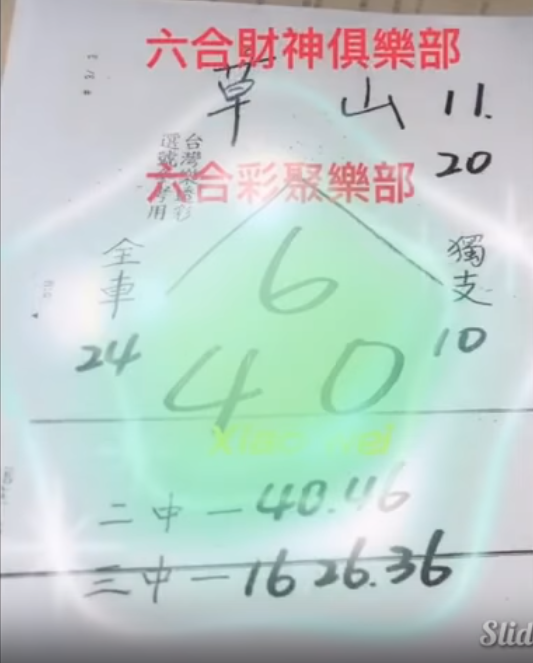 六合財神俱樂部
草山 11.
20
台灣樂透彩
選號參考用
六合彩聚樂部
全車
24
獨支
10
6
40
二中一40.46
三中一16 26.36
Slid